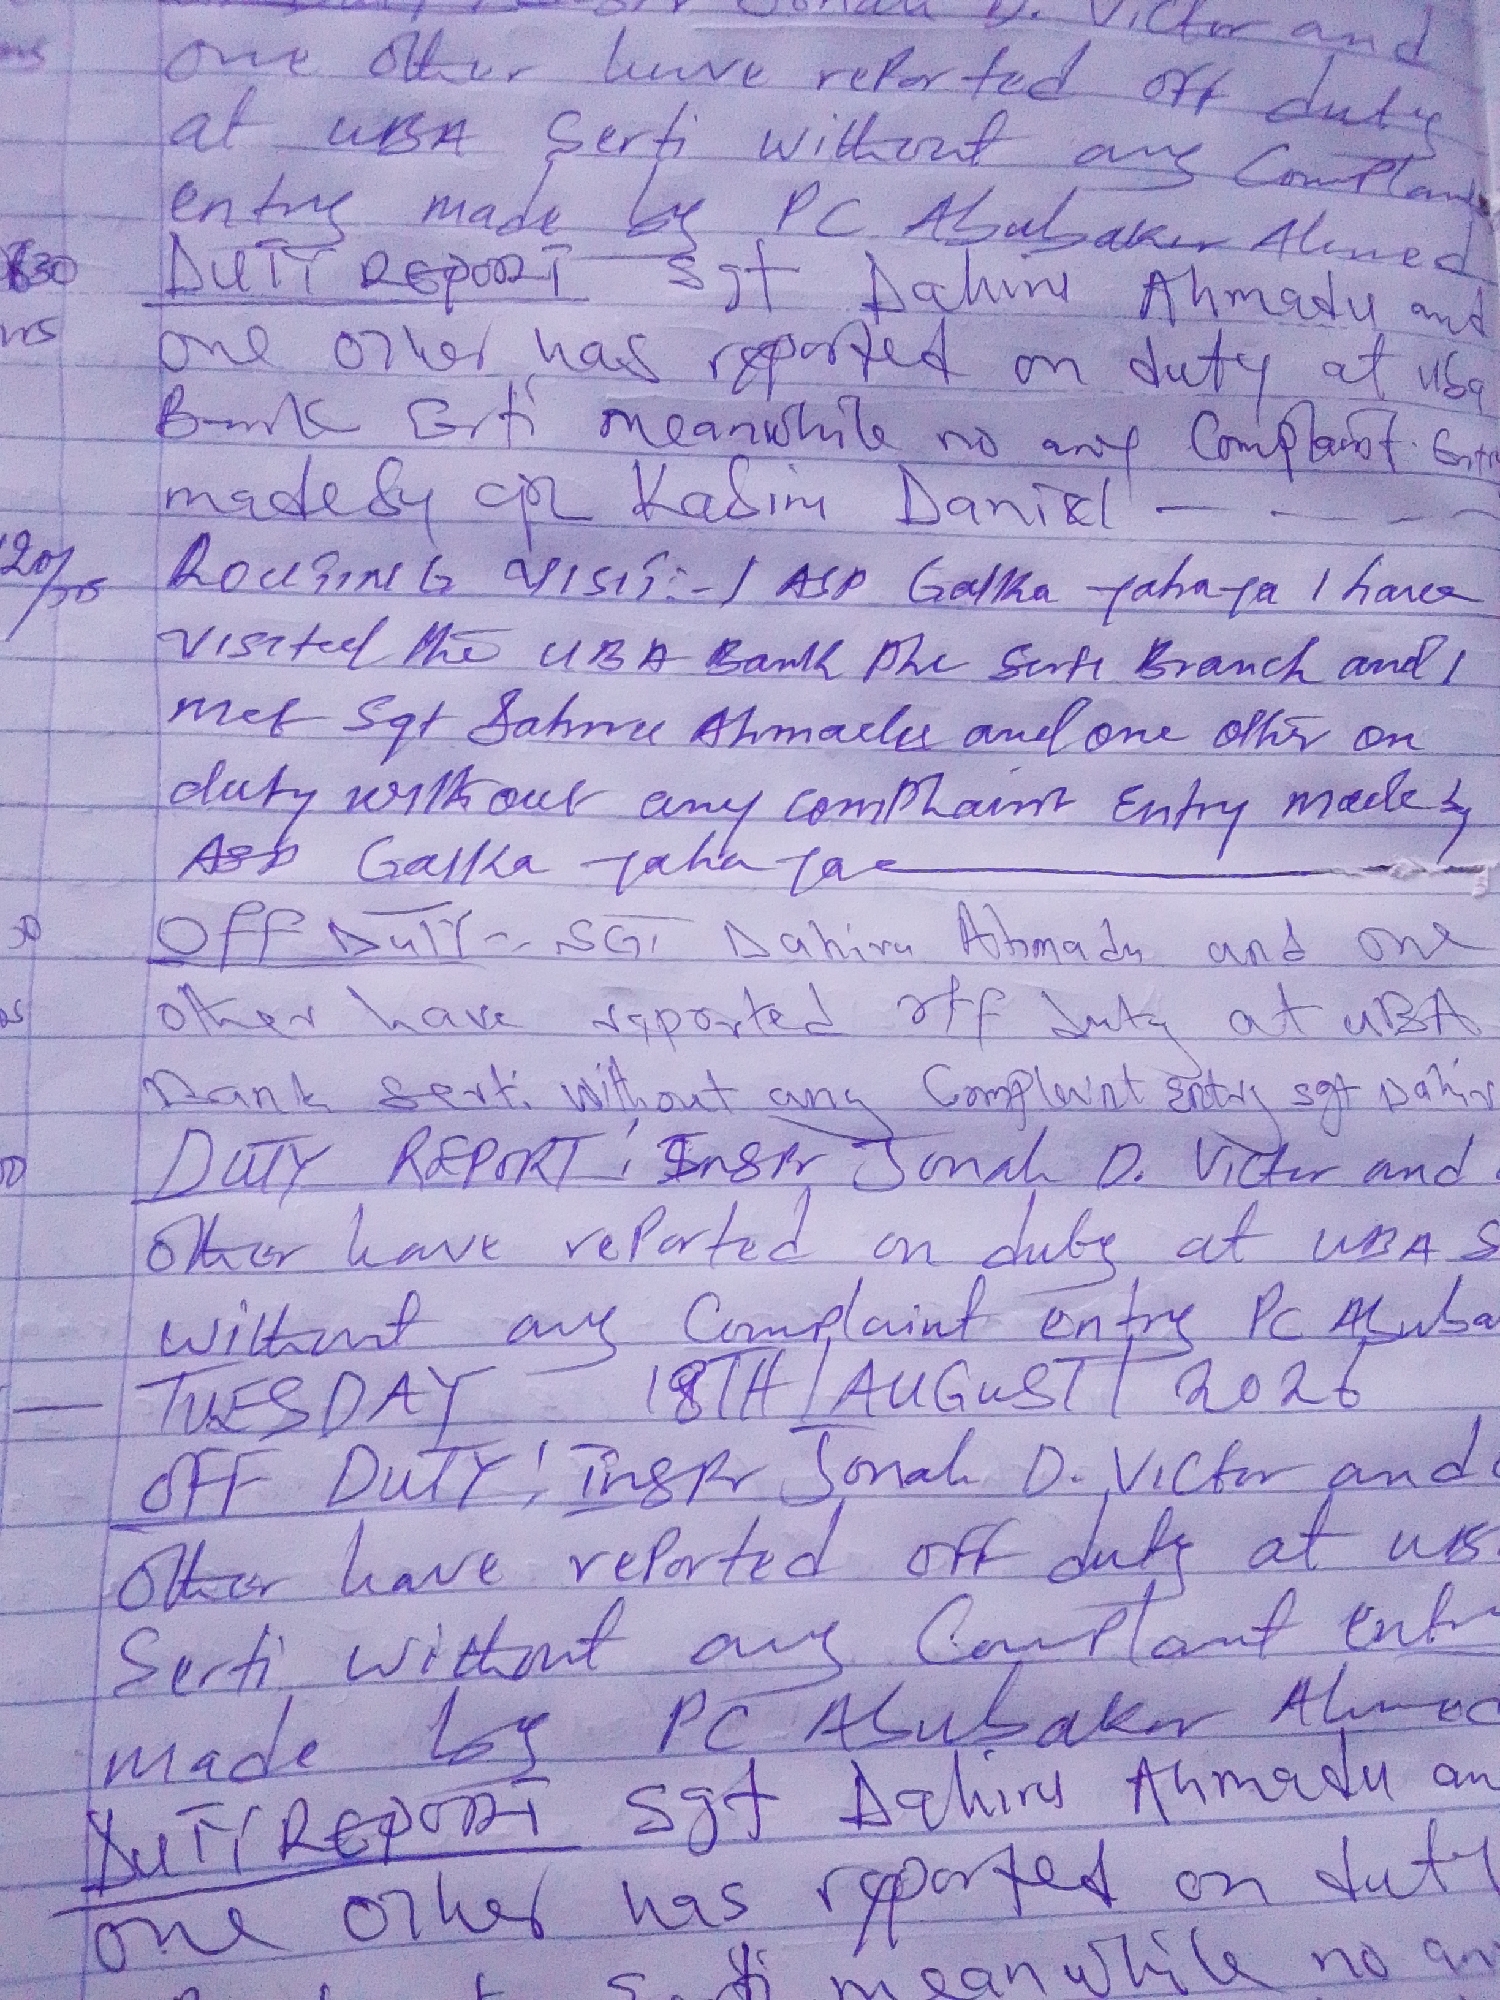 Jonah D. Victor and
one other have reported off duty
at UBA Serti without any Complain
entry made by PC Abubakar Ahmed
30 DUTY REPORT Sgt Dahiru Ahmadu and
one other has reported on duty at UBA
Bank Serti meanwhile no any Complaint. Entry
made by cpl Kasim Daniel — — — —
ROUTINE VISIT:- I ASP Galka Yahaya I have
visited the UBA Bank Plc Serti Branch and I
met Sgt Dahiru Ahmadu and one other on
duty without any complaint Entry made by
ASP Galka Yahaya
30 OFF DUTY - SGT Dahiru Ahmadu and one
other have reported off duty at UBA
Bank Serti without any Complaint Entry Sgt Dahiru
DUTY REPORT: Inspr Jonah D. Victor and
other have reported on duty at UBA S
without any Complaint entry PC Abuba
— TUESDAY 18TH/AUGUST/2026
OFF DUTY: Inspr Jonah D. Victor and
other have reported off duty at UB
Serti without any Complant entry
made by PC Abubakar Ahmed
DUTY REPORT Sgt Dahiru Ahmadu an
one other has reported on duty
Serti meanwhile no an